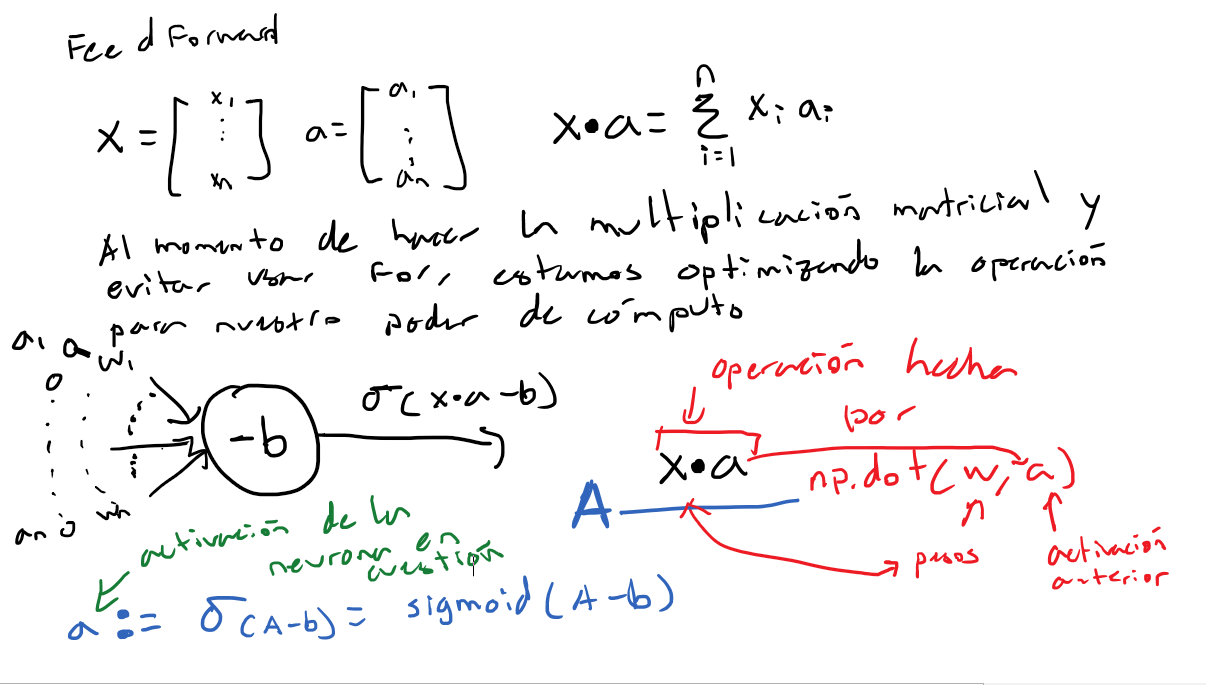 Feed Forward
X = [x₁ ⋮ xₙ] a = [a₁ ⋮ aₙ] x•a = Σᵢ₌₁ⁿ xᵢ aᵢ
Al momento de hacer la multiplicación matricial y
evitar usar For, estamos optimizando la operación
para nuestro poder de cómputo
a₁ w₁
aₙ wₙ
-b
σ(x•a-b)
operación hecha
por
x•a
np.dot(w, a)
A
pesos
activación
anterior
activación de la
neurona en
cuestión
a := σ(A-b) = sigmoid(A-b)